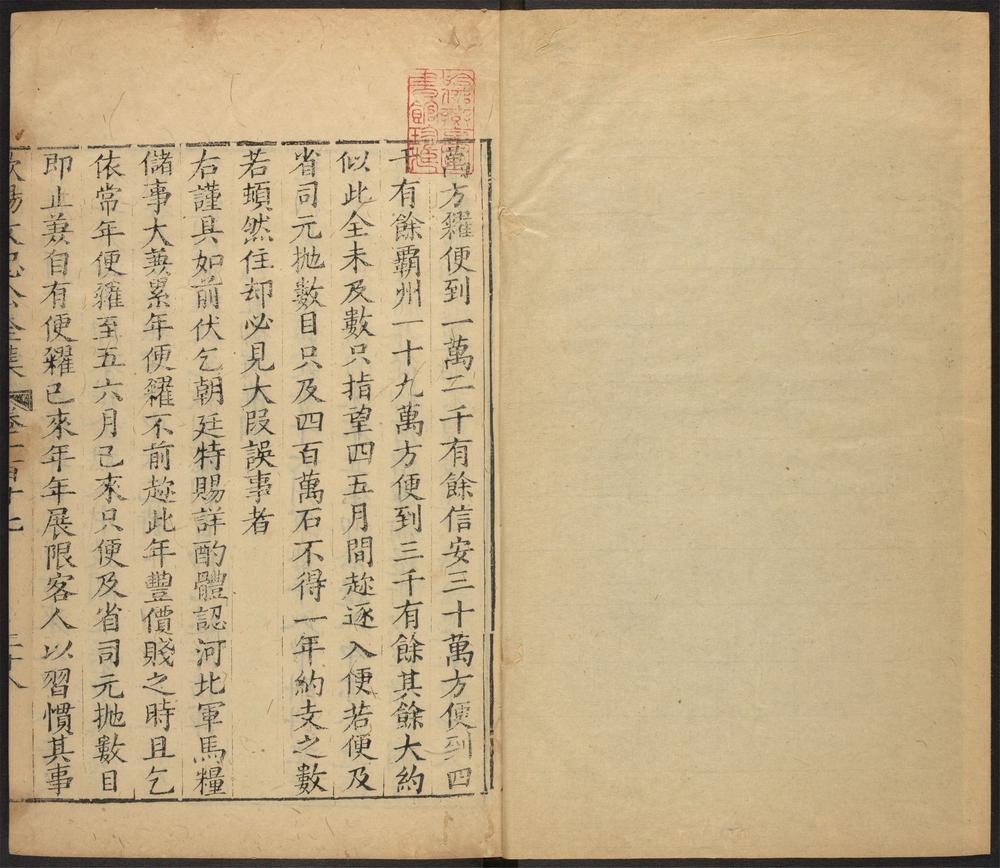 萬方糴便到一萬二千有餘信安三十萬方便到四
千有餘霸州一十九萬方便到三千有餘其餘大約
似此全未及數只指望四五月間趂逐入便若便及
省司元拋數目只及四百萬石不得一年約支之數
若頓然住却必見大段誤事者
右謹具如前伏乞朝廷特賜詳酌體認河北軍馬糧
儲事大兼累年便糴不前趂此年豐價賤之時且乞
依常年便糴至五六月已來只便及省司元拋數目
即止兼自有便糴已來年年展限客人以習慣其事
歐陽文忠公全集 卷一百十七 三十八